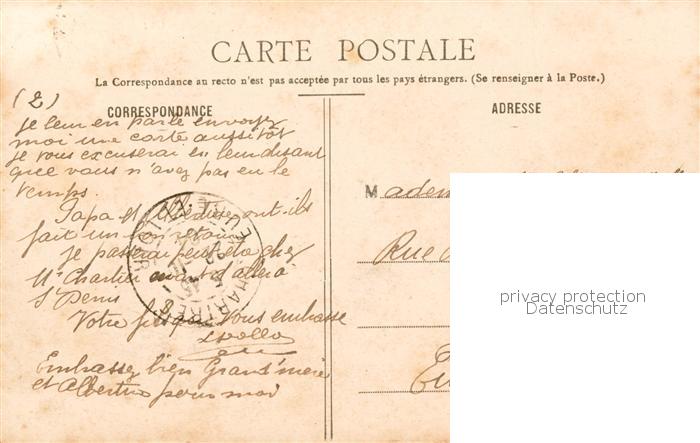 CARTE POSTALE
La Correspondance au recto n'est pas acceptée par tous les pays étrangers. (Se renseigner à la Poste.)
(2)
CORRESPONDANCE
ADRESSE
je leur en parle envoyez
moi une carte aussitôt
je vous excuserai en leur disant
que vous n'avez pas eu le
temps.
Papa et ont-ils
fait un bon retour
je passerai peut-être chez
Mr Chartier avant d'aller à
St Denis
Votre vous embrasse
Embrassez bien Grand'mère
et Albertine pour moi
CHARTRES
EURE
Rue
privacy protection
Datenschutz